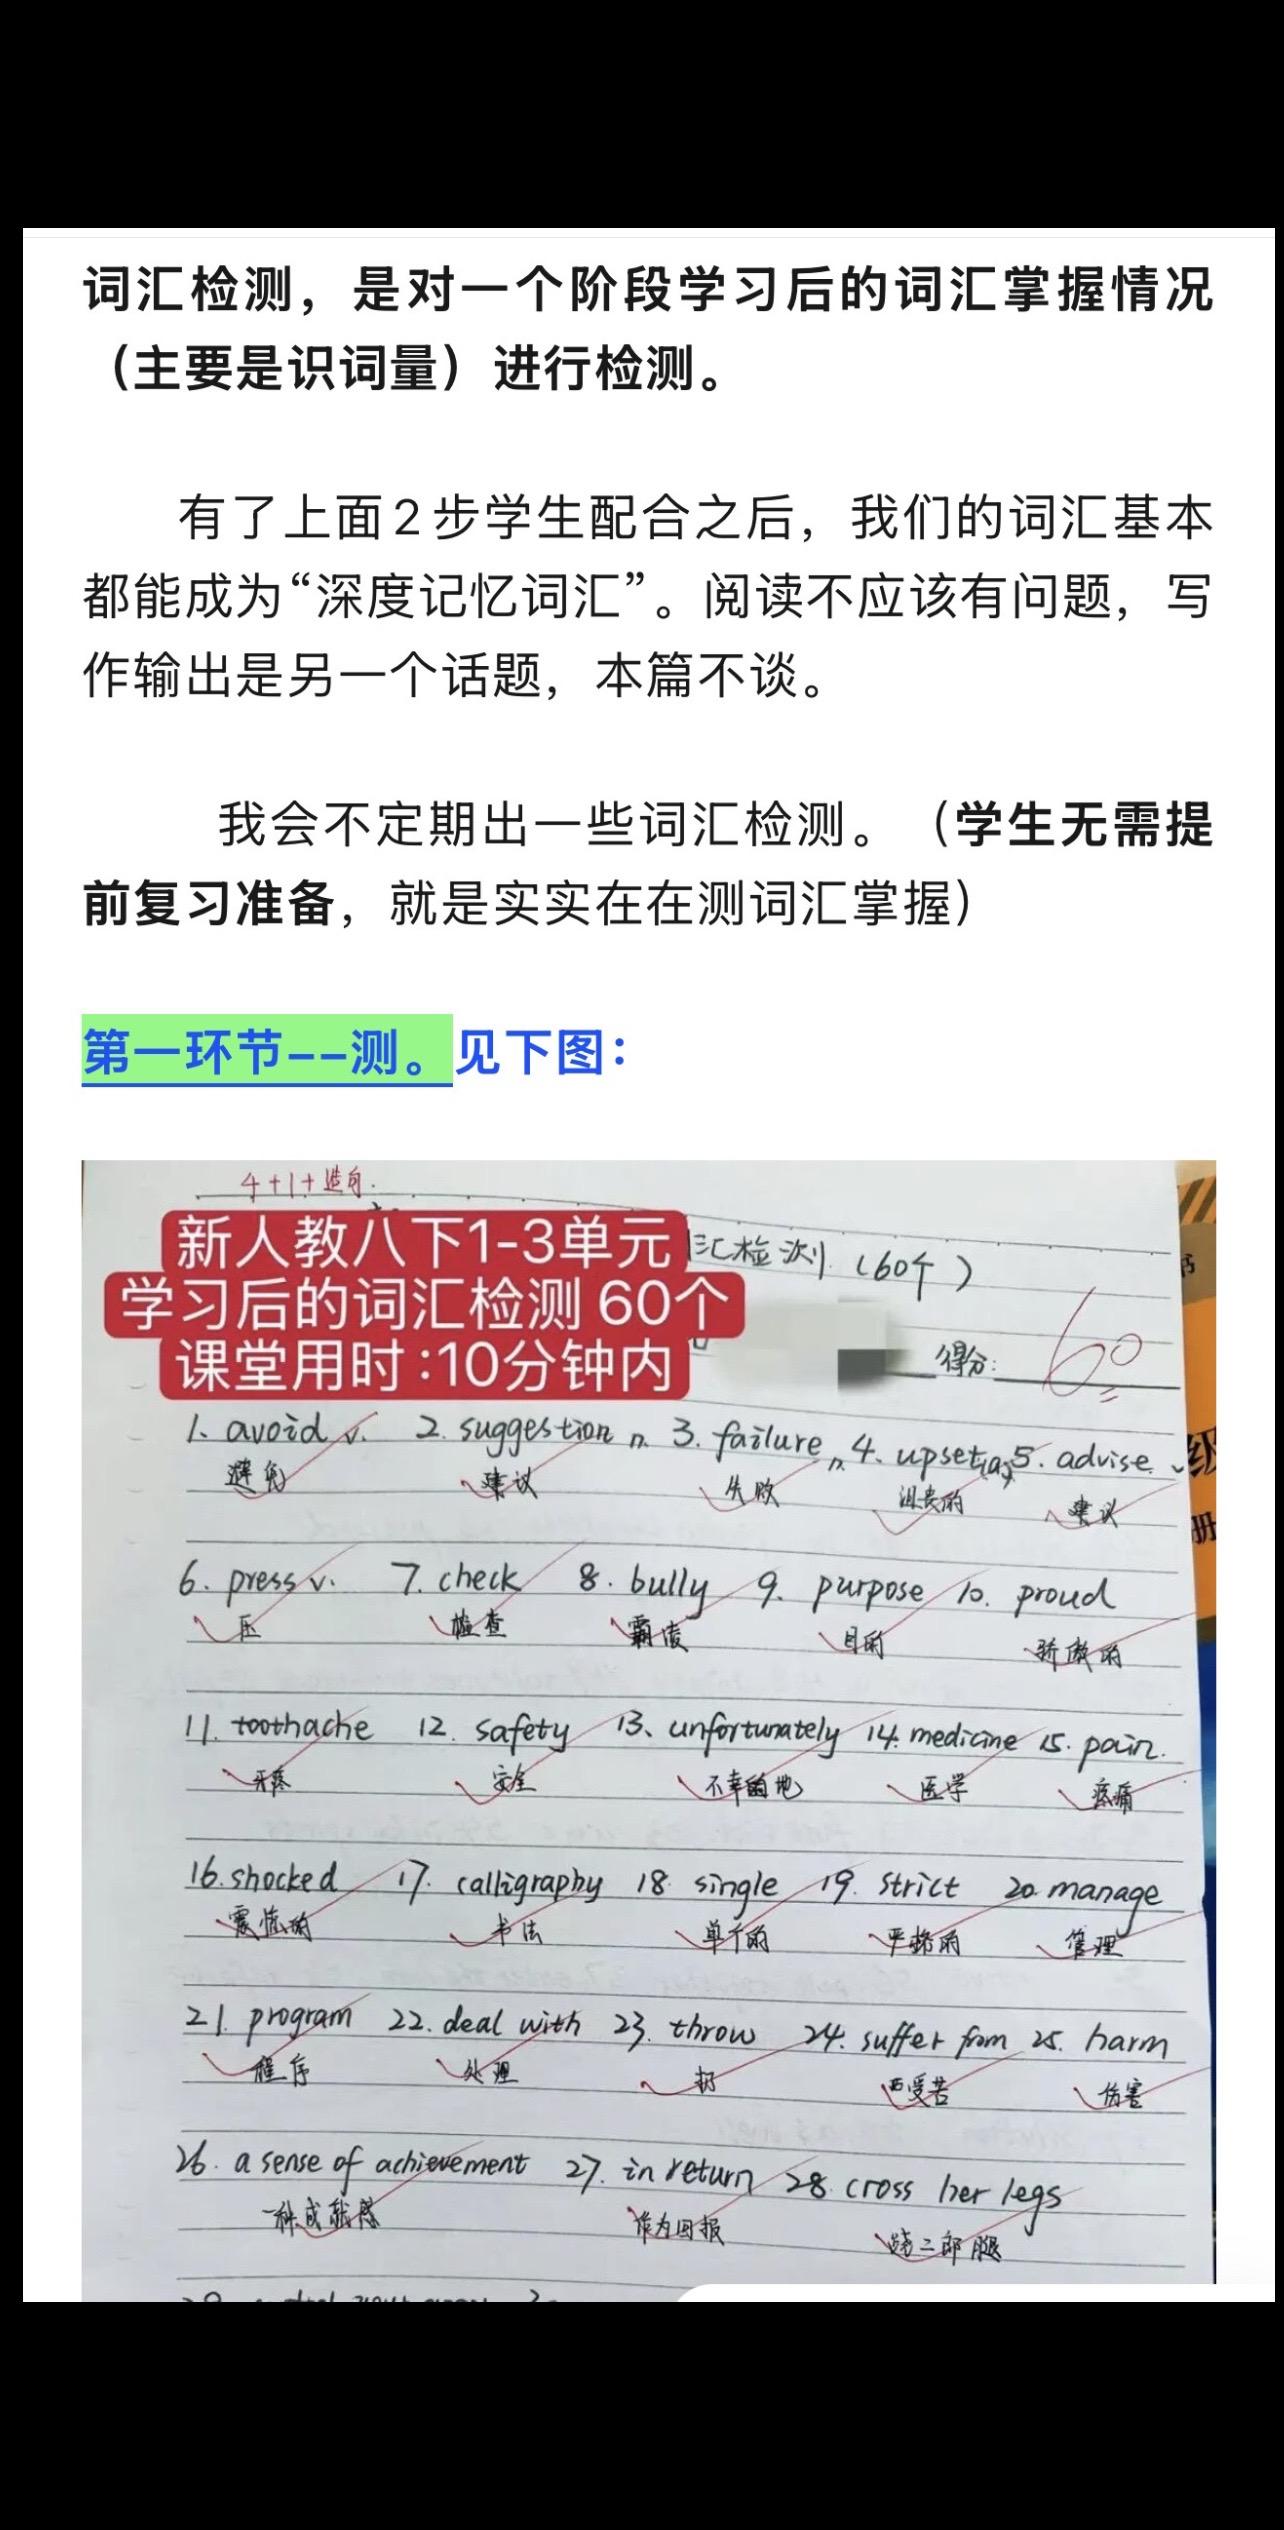 词汇检测，是对一个阶段学习后的词汇掌握情况
（主要是识词量）进行检测。
有了上面2步学生配合之后，我们的词汇基本
都能成为“深度记忆词汇”。阅读不应该有问题，写
作输出是另一个话题，本篇不谈。
我会不定期出一些词汇检测。（学生无需提
前复习准备，就是实实在在测词汇掌握）
第一环节--测。见下图：
4+1+造句.
新人教八下1-3单元
学习后的词汇检测 60个
课堂用时:10分钟内
汇检测（60个）
得分: 60
书
级
册
1. avoid v. 2. suggestion n. 3. failure n. 4. upset(a) 5. advise v
避免 建议 失败 沮丧的 建议
6. press v. 7. check 8. bully 9. purpose 10. proud
压 检查 霸凌 目的 骄傲的
11. toothache 12. safety 13、unfortunately 14. medicine 15. pain.
牙疼 安全 不幸的地 医学 疼痛
16. shocked 17. calligraphy 18. single 19. strict 20. manage
震惊的 书法 单个的 严格的 管理
21. program 22. deal with 23. throw 24. suffer from 25. harm
程序 处理 扔 受苦 伤害
26. a sense of achievement 27. in return 28. cross her legs
一种成就感 作为回报 跷二郎腿